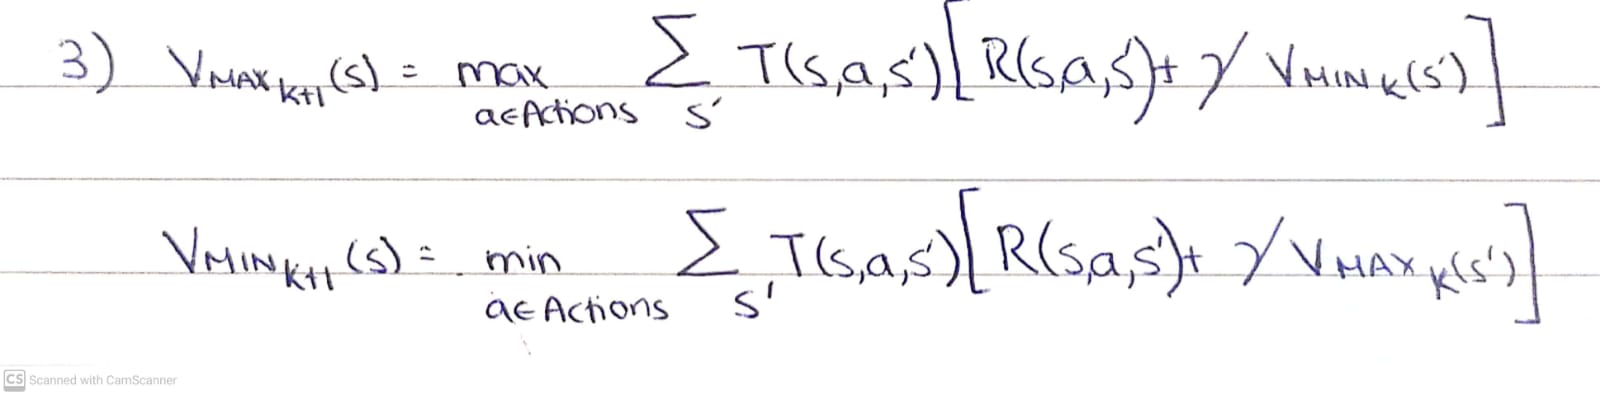 3) V_MAX_{k+1}(s) = max_{a∈Actions} Σ_{s'} T(s,a,s')[R(s,a,s')+ γ V_MIN_k(s')]
V_MIN_{k+1}(s) = min_{a∈Actions} Σ_{s'} T(s,a,s')[R(s,a,s')+ γ V_MAX_k(s')]
CS Scanned with CamScanner